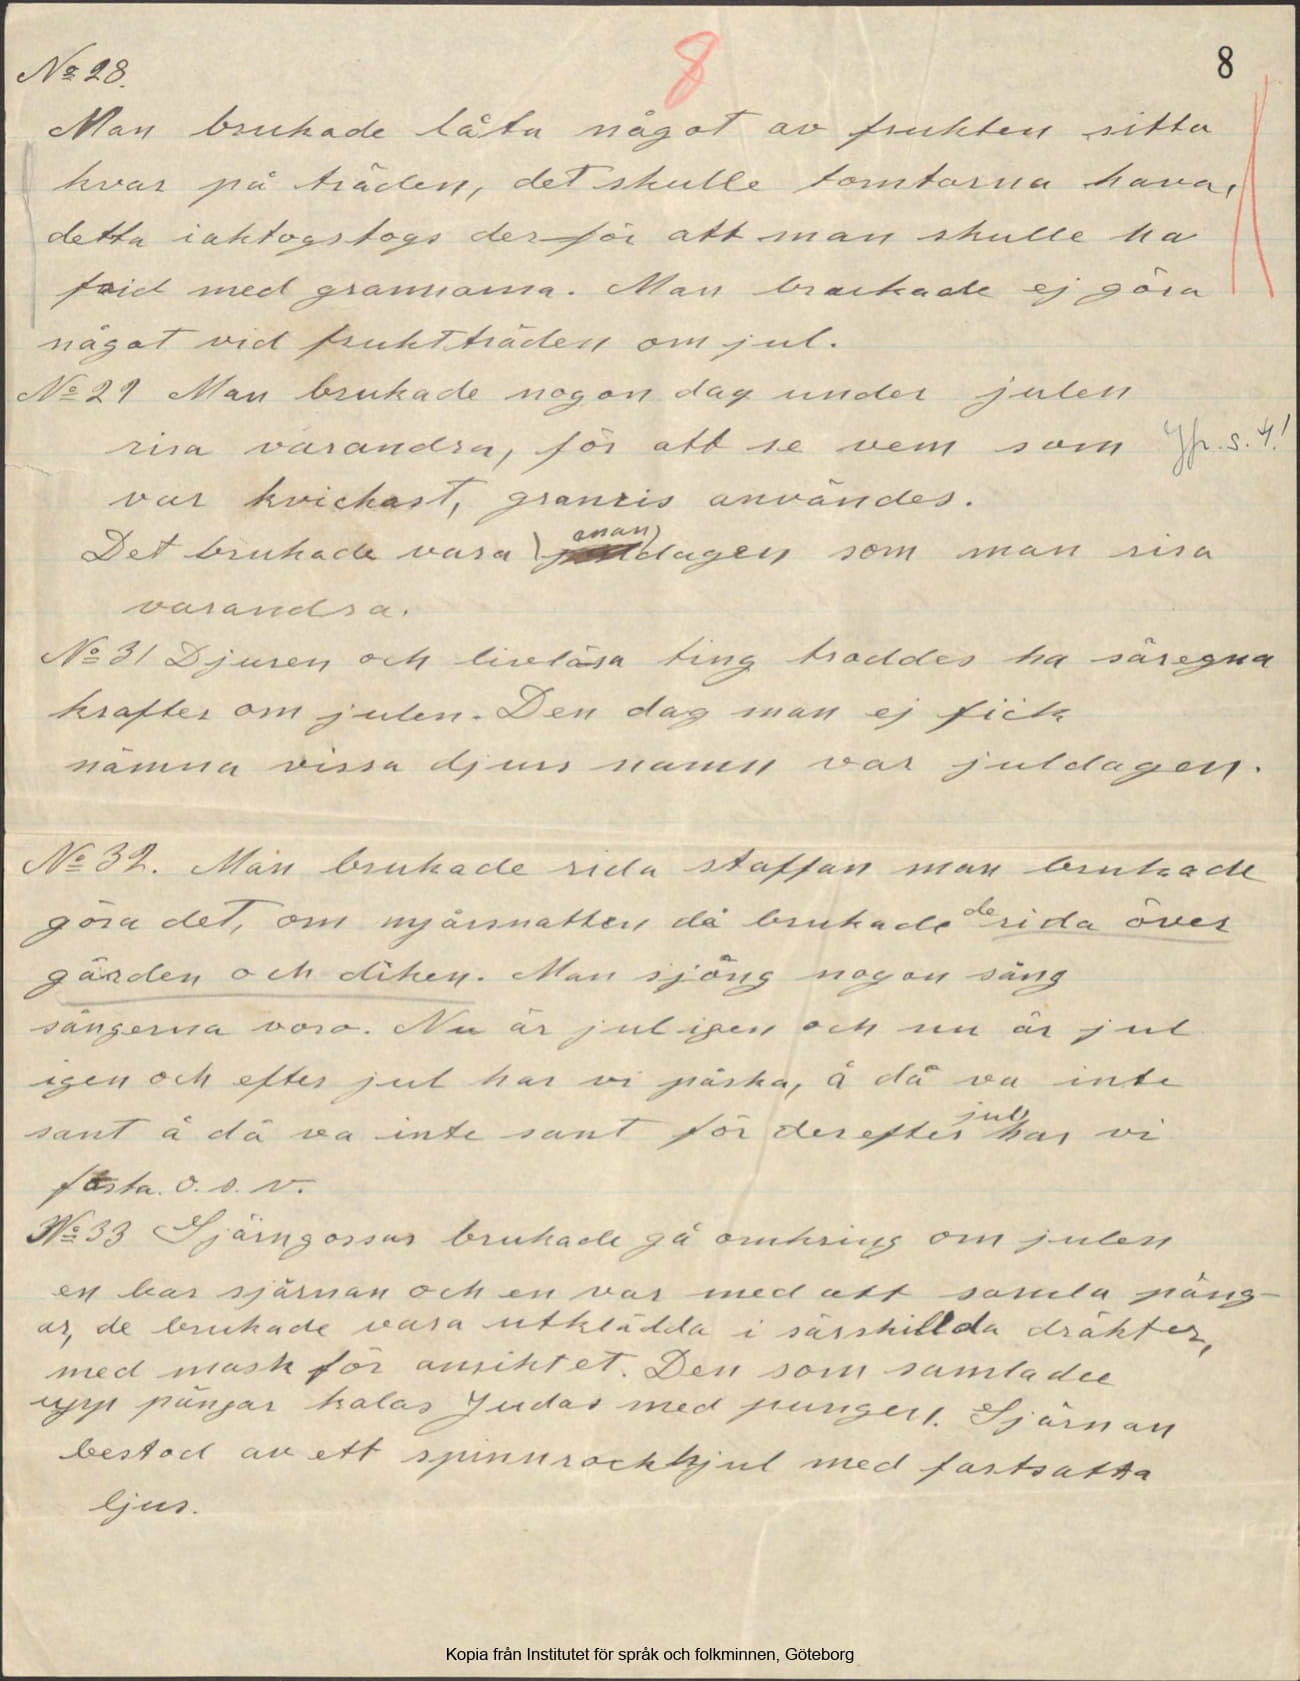 8
8
No 28.
Man brukade låta något av frukten sitta
kvar på träden, det skulle tomtarna hava,
detta iaktogstogs derför att man skulle ha
frid med grannarna. Man brukade ej göra
något vid fruktträden om jul.
No 29 Man brukade nogon dag under julen
risa varandra, för att se vem som
Jfr. s. 4!
var kvickast, granris användes.
annan
Det brukade vara dagen som man risa
varandra.
No 31 Djuren och livelösa ting troddes ha säregna
krafter om julen. Den dag man ej fick
nämna vissa djurs namn var juldagen.
No 32. Man brukade rida staffan man brukade
göra det, om nyårsnatten då brukade de rida över
gärden och diken. Man sjöng nogon sång
sångerna voro. Nu är jul igen och nu är jul
igen och efter jul har vi påska, å dä va inte
sant å dä va inte sant för derefter jul har vi
fasta. o. s. v.
No 33 Sjärngossar brukade gå omkring om julen
en bar sjärnan och en var med att samla päng-
ar, de brukade vara utklädda i särskillda dräkter,
med mask för ansiktet. Den som samlade
upp pängar kalas Judas med pungen. Sjärnan
bestod av ett spinnrockhjul med fastsatta
ljus.
Kopia från Institutet för språk och folkminnen, Göteborg